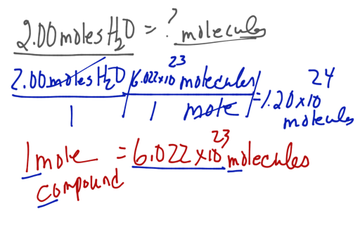 2.00 moles H₂O = ? molecules
2.00 moles H₂O | 6.022×10²³ molecules | = 1.20×10²⁴ molecules
1 | 1 mole
1 mole compound = 6.022×10²³ molecules